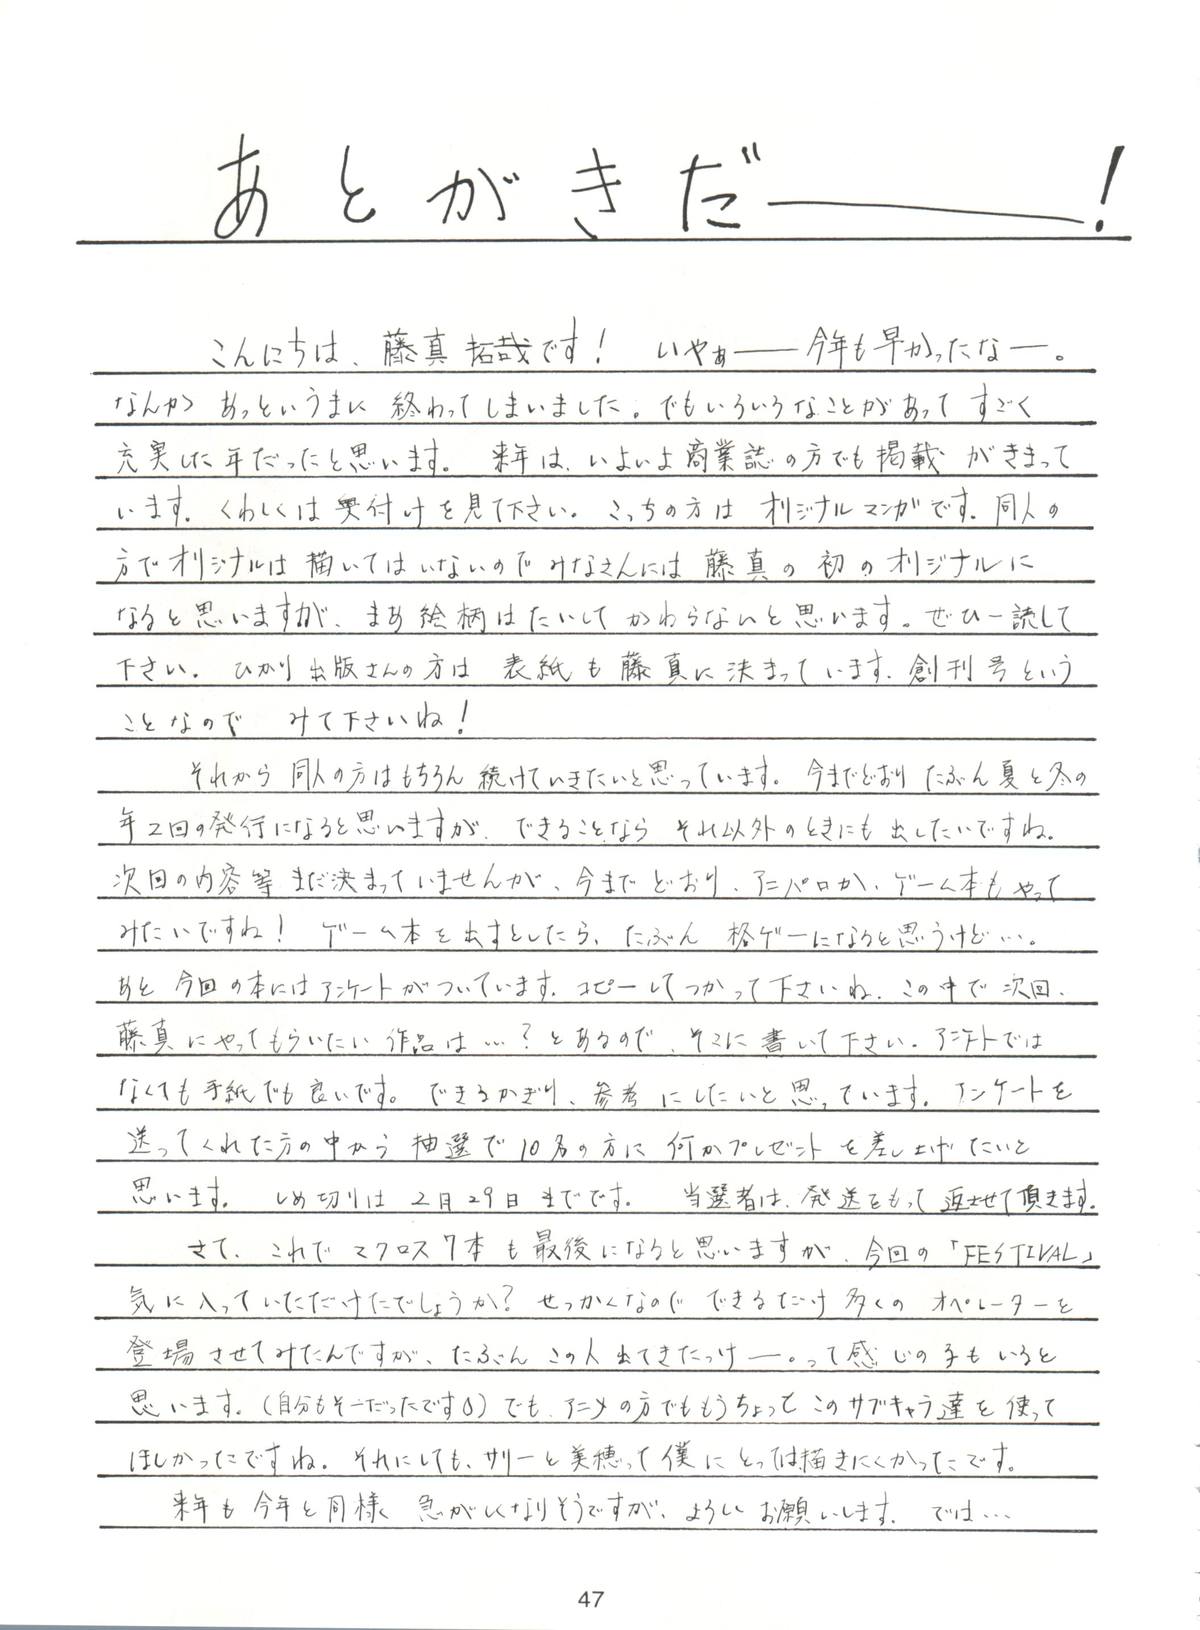 あとがきだ――!
こんにちは、藤真拓哉です! いやぁ――今年も早かったなー。
なんか あっというまに 終わってしまいました。でもいろいろなことがあって すごく
充実した年だったと思います。 来年は、いよいよ商業誌の方でも掲載 がきまって
います。くわしくは奥付けを見て下さい。こっちの方は オリジナルマンガです。同人の
方でオリジナルは描いてはいないのでみなさんには 藤真の初のオリジナルに
なると思いますが、まあ絵柄はたいして かわらないと思います。ぜひ一読して
下さい。 ひかり出版さんの方は 表紙も藤真に決まっています。創刊号という
ことなので みて下さいね!
それから 同人の方はもちろん 続けていきたいと思っています。 今までどおり たぶん夏と冬の
年2回の発行になると思いますが、できることなら それ以外のときにも出したいですね。
次回の内容等まだ決まっていませんが、今までどおり、アニパロか、ゲーム本もやって
みたいですね! ゲーム本を出すとしたら、たぶん 格ゲーになると思うけど…。
あと 今回の本にはアンケートがついています。コピーしてつかって下さいね。この中で次回、
藤真にやってもらいたい作品は…?とあるので、そこに書いて下さい。アンケートでは
なくても手紙でも良いです。できるかぎり、参考にしたいと思っています。アンケートを
送ってくれた方の中から 抽選で10名の方に 何かプレゼントを差し上げたいと
思います。 しめ切りは 2月29日までです。 当選者は、発送をもって返させて頂きます。
さて、これでマクロス7本も最後になると思いますが、今回の「FESTIVAL」
気に入っていただけたでしょうか? せっかくなので できるだけ多くの オペレーターを
登場させてみたんですが、たぶん この人出てきたっけー。って感じの子もいると
思います。(自分もそーだったです) でも、アニメの方でももうちょっと このサブキャラ達を使って
ほしかったですね。それにしても、サリーと美穂って僕にとっては描きにくかったです。
来年も今年と同様 急がしくなりそうですが、よろしくお願いします。 では…
47